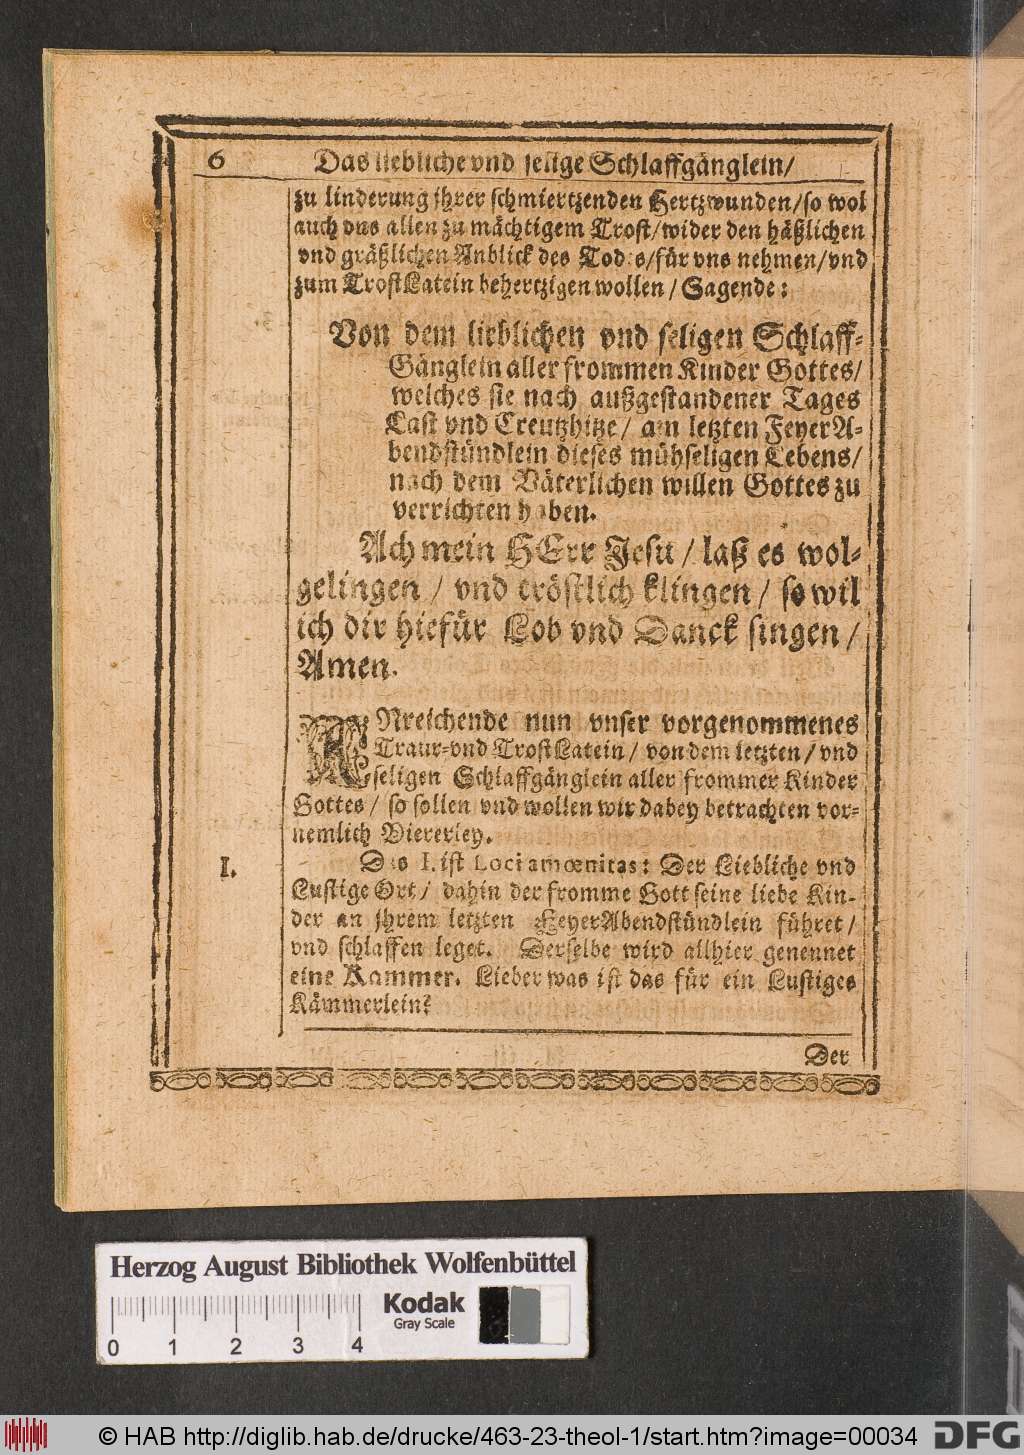 6 Das liebliche vnd selige Schlaffgänglein/
zu linderung jhrer schmiertzenden Hertzwunden/so wol
auch vns allen zu mächtigem Trost/wider den häßlichen
vnd gräßlichen Anblick des Todes/für vns nehmen/vnd
zum TrostLatein behertzigen wollen/Sagende:
Von dem lieblichen vnd seligen Schlaff-
Gänglein aller frommen Kinder Gottes/
welches sie nach außgestandener Tages
Last vnd Creutzhitze/ am letzten FeyerA-
bendstündlein dieses mühseligen Lebens/
nach dem Väterlichen willen Gottes zu
verrichten haben.
Ach mein HErr Jesu/laß es wol-
gelingen/vnd tröstlich klingen/so wil
ich dir hiefür Lob vnd Danck singen/
Amen.
ANreichende nun vnser vorgenommenes
Traur-vnd TrostLatein/von dem letzten/vnd
seligen Schlaffgänglein aller frommer Kinder
Gottes/ so sollen vnd wollen wir dabey betrachten vor-
nemlich Viererley.
I.
Das I. ist Loci amœnitas: Der Liebliche vnd
Lustige Ort/ dahin der fromme Gott seine liebe Kin-
der an jhrem letzten FeyerAbendstündlein führet/
vnd schlaffen leget. Derselbe wird allhier genennet
eine Kammer. Lieber was ist das für ein Lustiges
Kämmerlein?
Der
Herzog August Bibliothek Wolfenbüttel
Kodak
Gray Scale
0 1 2 3 4
© HAB http://diglib.hab.de/drucke/463-23-theol-1/start.htm?image=00034
DFG